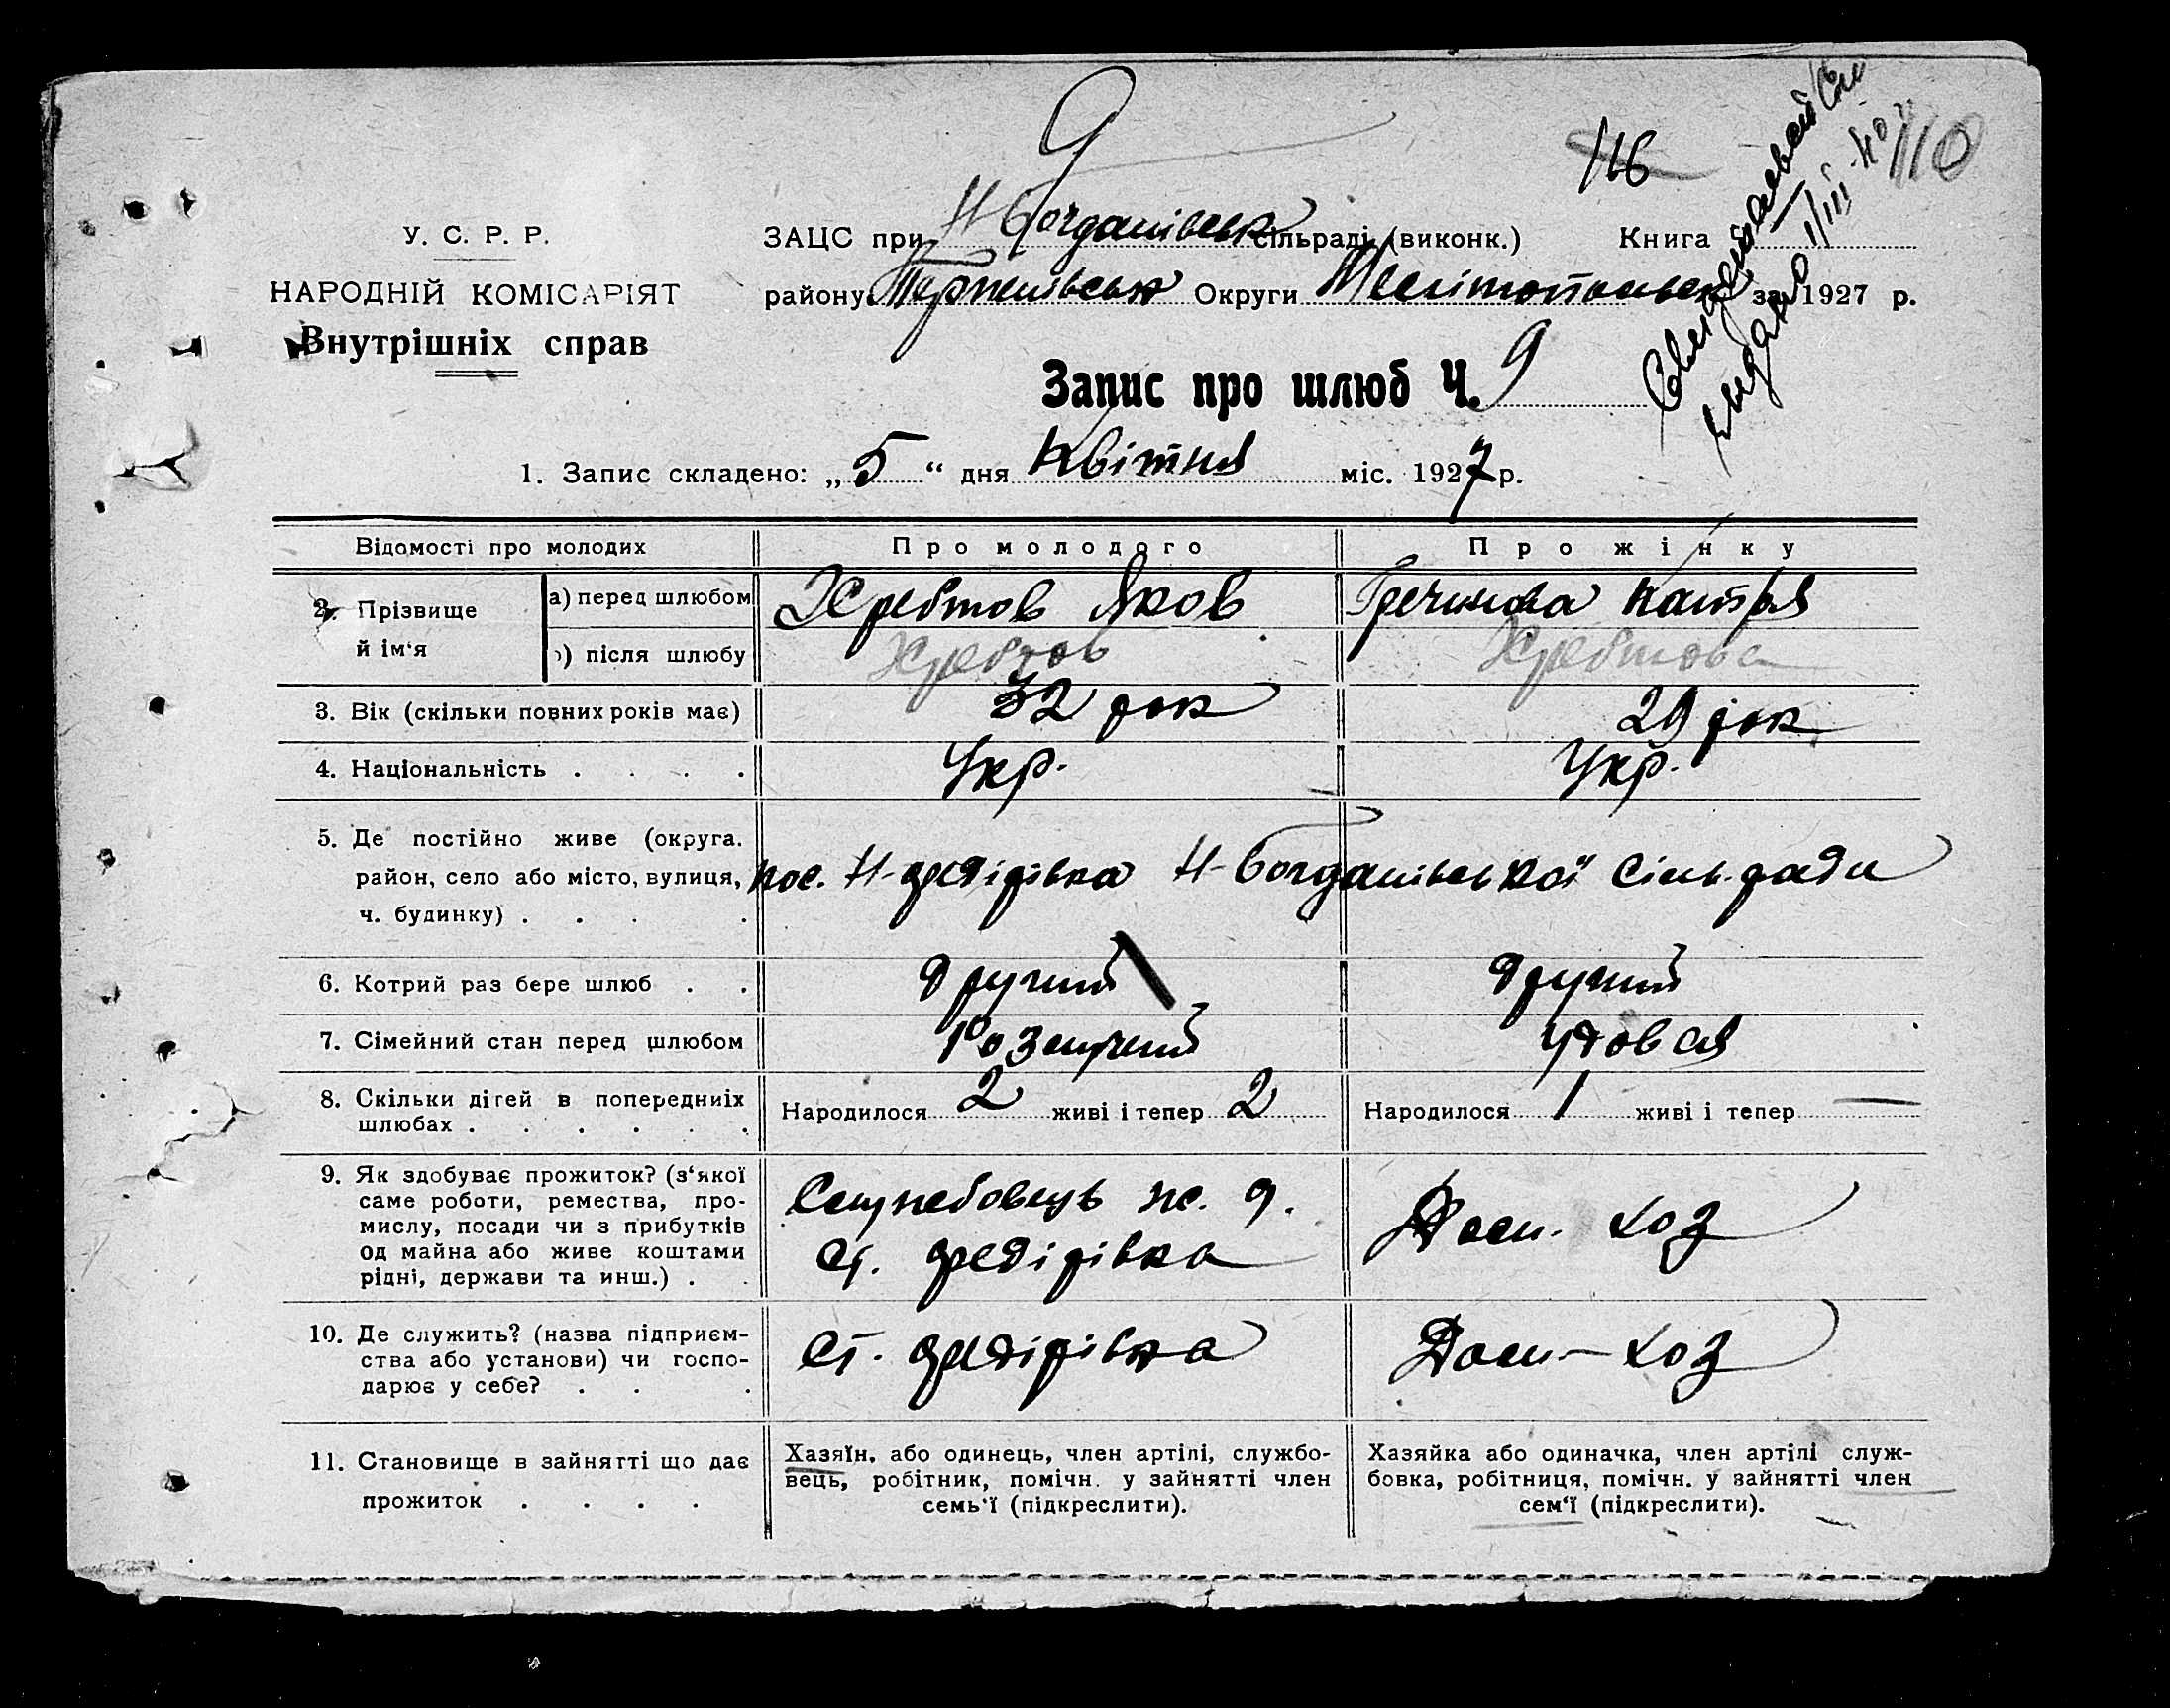 9
116
110
У. С. Р. Р.
НАРОДНІЙ КОМІСАРІЯТ
Внутрішніх справ
ЗАЦС при Н Богданівськ сільраді (виконк.) Книга
району Терпенівськ Округи Мелітопольськ за 1927 р.
выдано 1/III-40
Запис про шлюб Ч. 9
1. Запис складено: „5“ дня Квітня міс. 1927 р.
Відомості про молодих Про молодого Про жінку
2. Прізвище й ім‘я а) перед шлюбом Хребтов Яков Катря
б) після шлюбу Хребтов Хребтова
3. Вік (скільки повних років має) 32 рок 29 рок
4. Національність . . . . Укр. Укр.
5. Де постійно живе (округа.
район, село або місто, вулиця, пос. Н-Федірівка Н-Богданівської Сільради
ч. будинку) . . . .
6. Котрий раз бере шлюб . . другий другий
7. Сімейний стан перед шлюбом Розлучений удовая
8. Скільки дітей в попередніх Народилося 2 живі і тепер 2 Народилося 1 живі і тепер —
шлюбах . . . . . .
9. Як здобуває прожиток? (з‘якої
саме роботи, ремества, про- Служебовець ж. д. Дом. хоз
мислу, посади чи з прибутків
од майна або живе коштами ст. Федірівка
рідні, держави та инш.) . .
10. Де служить? (назва підприєм-
ства або установи) чи госпо- ст. Федірівка Дом-хоз
дарює у себе? . . .
11. Становище в зайнятті що дає Хазяїн, або одинець, член артілі, службо- Хазяйка або одиначка, член артілі служ-
прожиток . . . . вець, робітник, помічн. у зайнятті член бовка, робітниця, помічн. у зайнятті член
семь‘ї (підкреслити). сем‘ї (підкреслити).